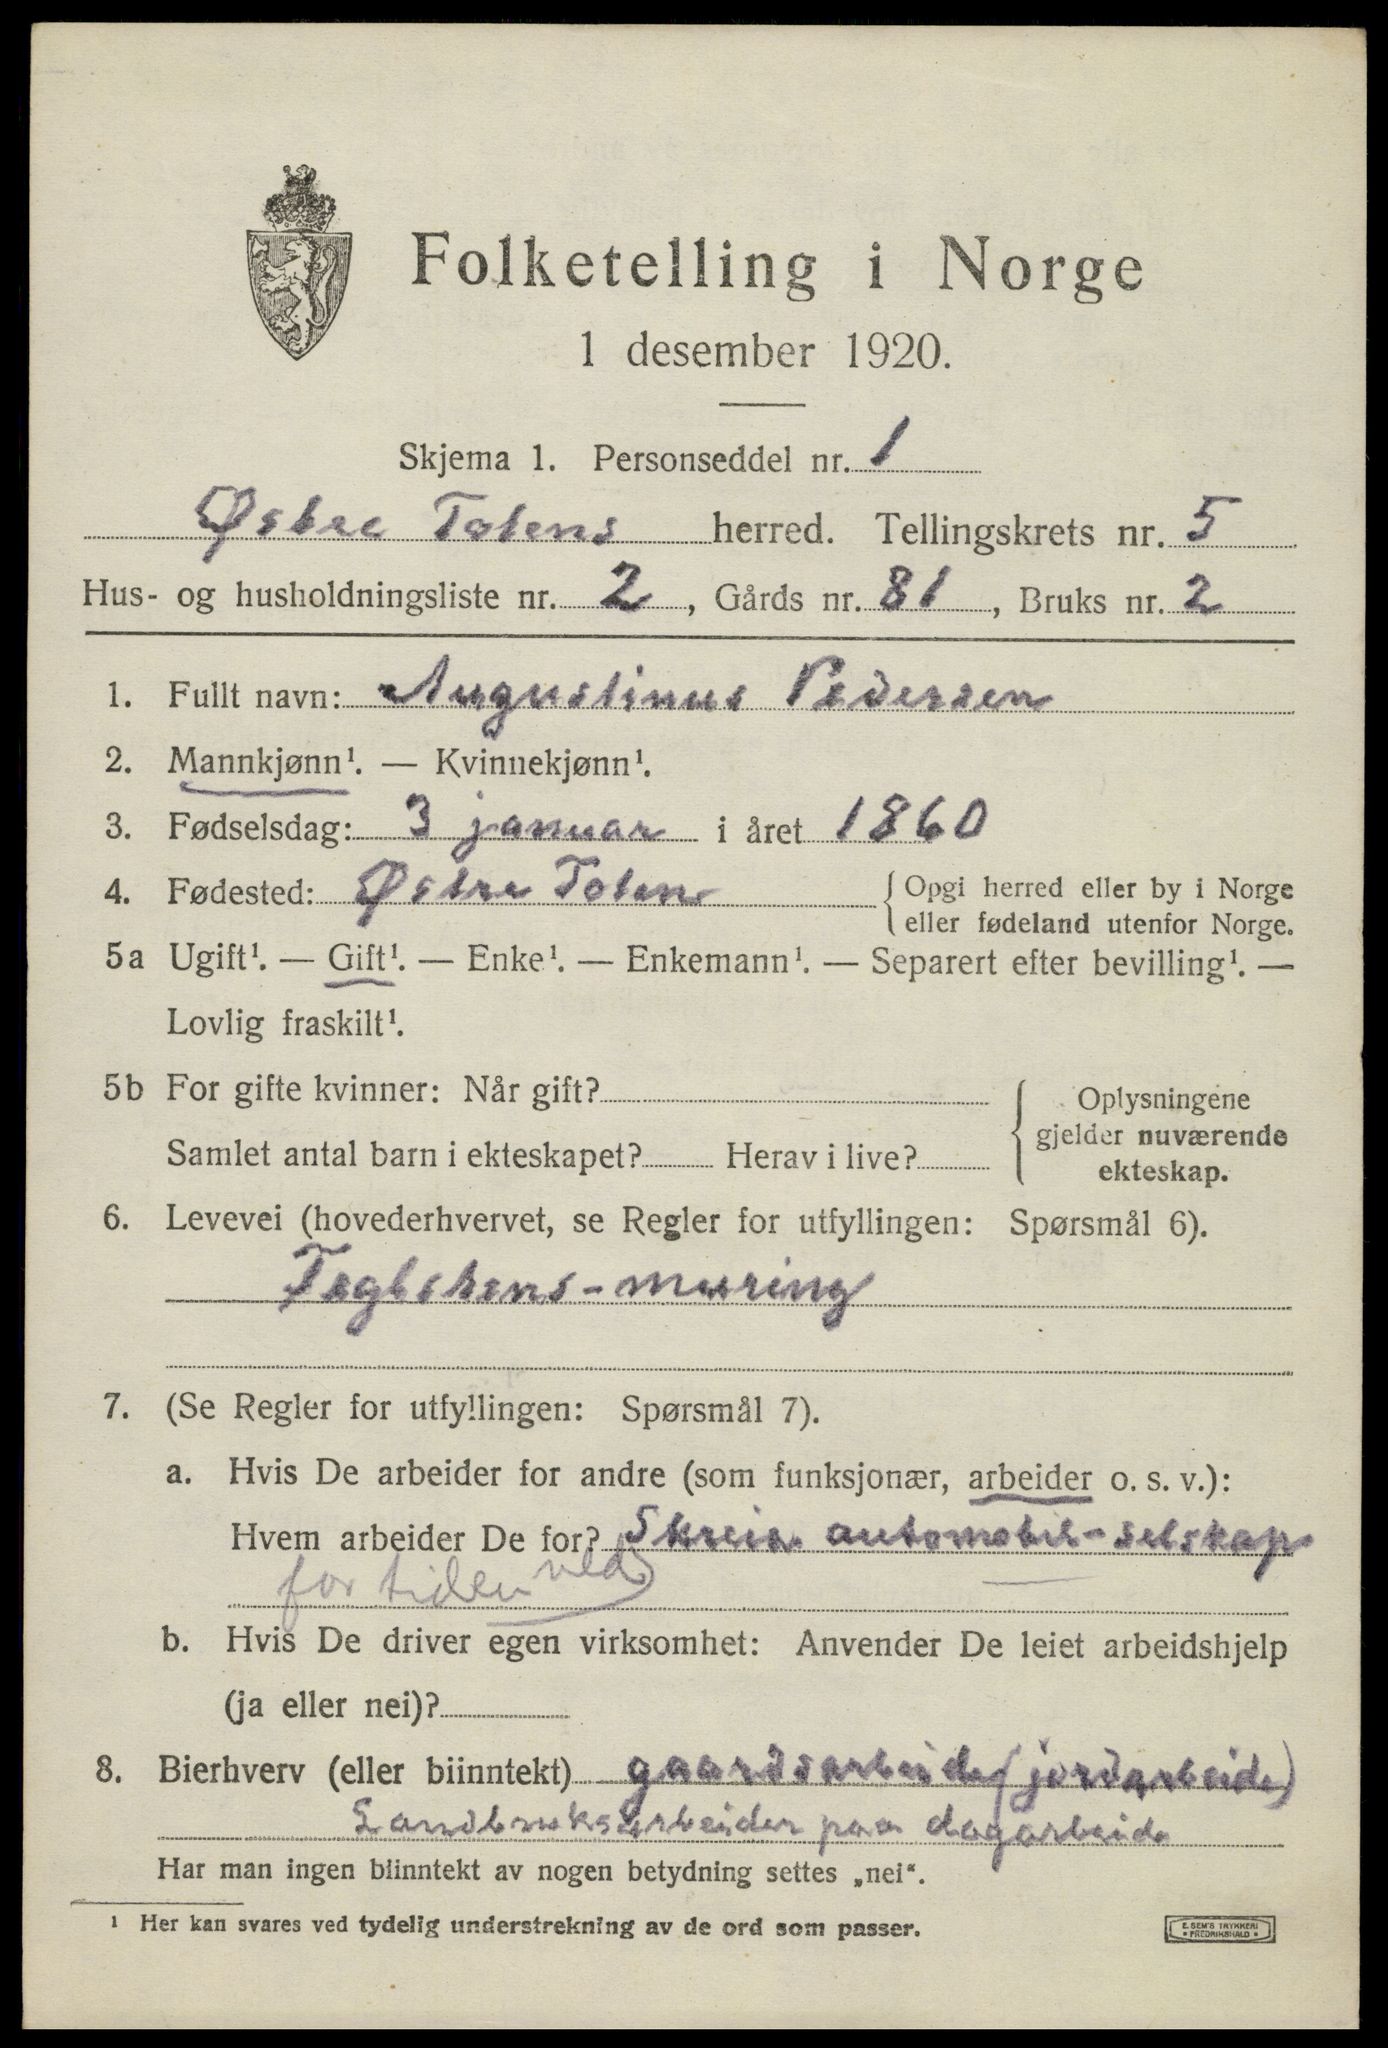 Folketelling i Norge
1 desember 1920.
Skjema 1. Personseddel nr. 1
Østre Totens herred. Tellingskrets nr. 5
Hus- og husholdningsliste nr. 2, Gårds nr. 81, Bruks nr. 2
1. Fullt navn: Augustinus Pedersen
2. Mannkjønn¹. — Kvinnekjønn¹.
3. Fødselsdag: 3 januar i året 1860
4. Fødested: Østre Toten {Opgi herred eller by i Norge
eller fødeland utenfor Norge.
5a Ugift¹. — Gift¹. — Enke¹. — Enkemann¹. — Separert efter bevilling¹. —
Lovlig fraskilt¹.
5b For gifte kvinner: Når gift?
Samlet antal barn i ekteskapet? Herav i live?
Oplysningene
gjelder nuværende
ekteskap.
6. Levevei (hovederhvervet, se Regler for utfyllingen: Spørsmål 6).
Teglstens-muring
7. (Se Regler for utfyllingen: Spørsmål 7).
a. Hvis De arbeider for andre (som funksjonær, arbeider o. s. v.):
Hvem arbeider De for? Skreia automobil-selskap
for tiden ved
b. Hvis De driver egen virksomhet: Anvender De leiet arbeidshjelp
(ja eller nei)?
8. Bierhverv (eller biinntekt) gaardsarbeide (jordarbeide)
Landbruksarbeider paa dagarbeide
Har man ingen biinntekt av nogen betydning settes „nei“.
¹ Her kan svares ved tydelig understrekning av de ord som passer.
E. SEM'S TRYKKERI
* FREDRIKSHALD *